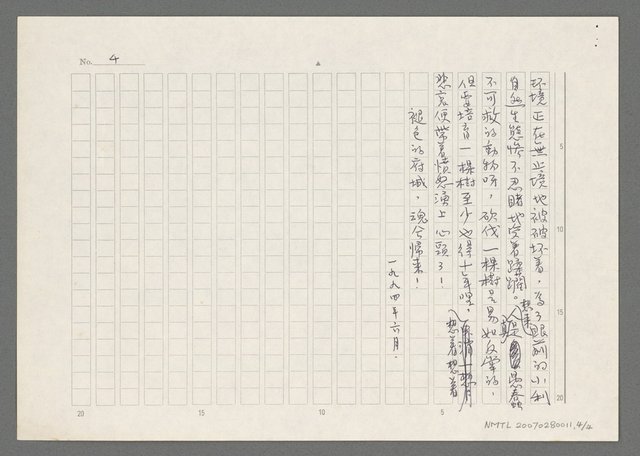 No. 4
环境正在無止境地被破坏着，為了眼前的小利
自然生態慘不忍睹地受着蹂躪。想來人是真愚蠢
不可救的動物呀，砍伐一棵樹是易如反掌的，
但要培育一棵樹至少也得十年哩，想着想着
悲哀便帶着憤怒湧上心頭了！
褪色的府城，魂兮歸來！
一九九四年六月．
5
10
15
20
20
15
10
5
NMTL 20070280011, 4/4